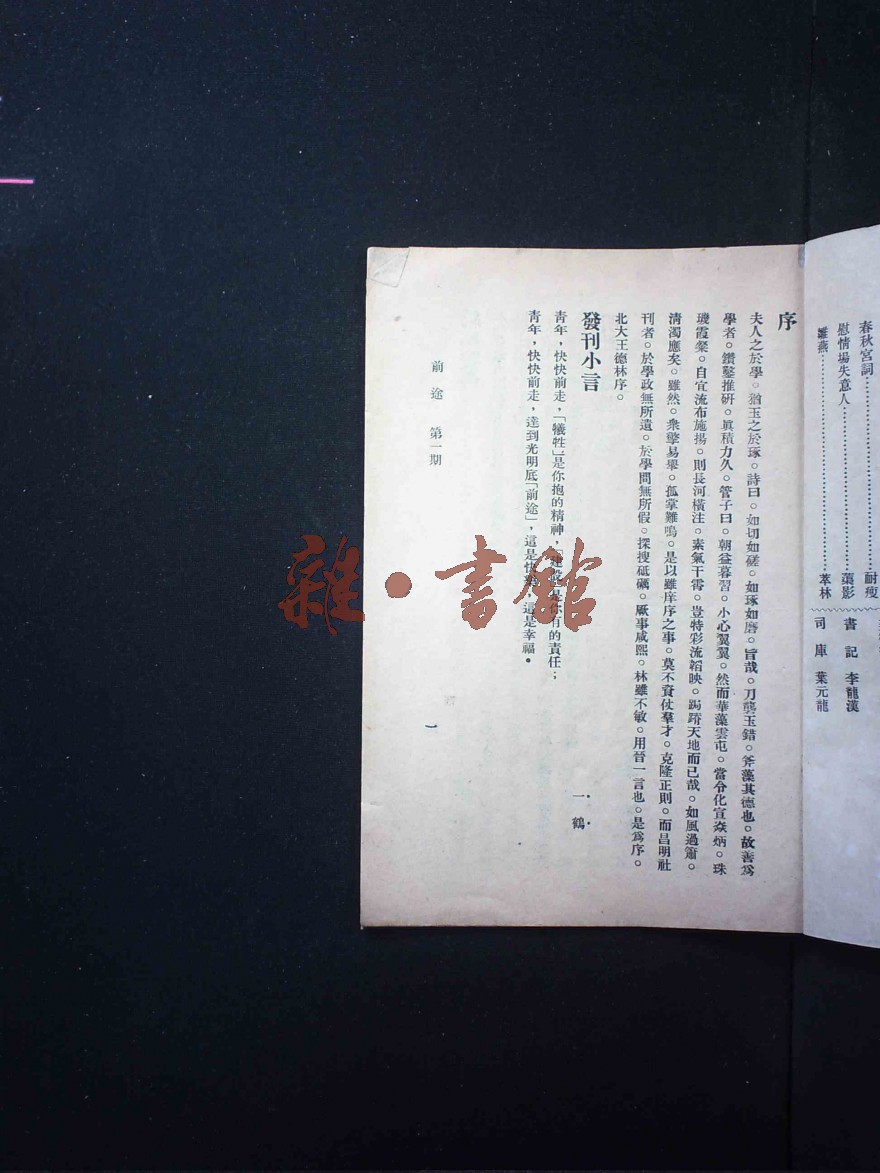 春秋宮詞………………………耐瘦
慰情場失意人………………………藹影
雛燕………………………苯林
書記 李龍漢
司庫 葉元龍
序
夫人之於學。猶玉之於琢。詩曰。如切如磋。如琢如磨。旨哉。刀礱玉錯。斧藻其德也。故善爲
學者。鑽鑿推研。眞積力久。管子曰。朝益暮習。小心翼翼。然而華藻雲屯。當令化宣焱炳。珠
璣霞燦。自宜流布施揚。則長河橫注。素氣干霄。豈特彩流韜映。跼蹐天地而已哉。如風過簫。
清濁應矣。雖然。衆擎易舉。孤掌難鳴。是以雖庠序之事。莫不資仗羣才。克隆正則。而昌明社
刊者。於學政無所遺。於學問無所假。探搜砥礪。厥事咸熙。林雖不敏。用晉一言也。是爲序。
北大王德林序。
發刊小言
一鶴
青年,快快前走,「犧牲」是你抱的精神,「建設」是你有的責任;
青年,快快前走,達到光明底「前途」,這是快樂,這是幸福。
前途 第一期
一
雜·書館